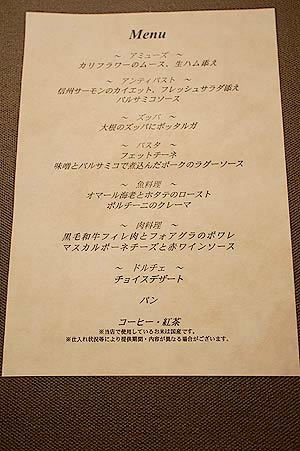 Menu
～ アミューズ ～
カリフラワーのムース、生ハム添え
～ アンティパスト ～
信州サーモンのカイエット、フレッシュサラダ添え
バルサミコソース
～ ズッパ ～
大根のズッパにボッタルガ
～ パスタ ～
フェットチーネ
味噌とバルサミコで煮込んだポークのラグーソース
～ 魚料理 ～
オマール海老とホタテのロースト
ポルチーニのクレーマ
～ 肉料理 ～
黒毛和牛フィレ肉とフォアグラのポワレ
マスカルポーネチーズと赤ワインソース
～ ドルチェ ～
チョイスデザート
パン
コーヒー・紅茶
※当店で使用しているお米は国産です。
※仕入れ状況等により提供期間・内容が異なる場合がございます。